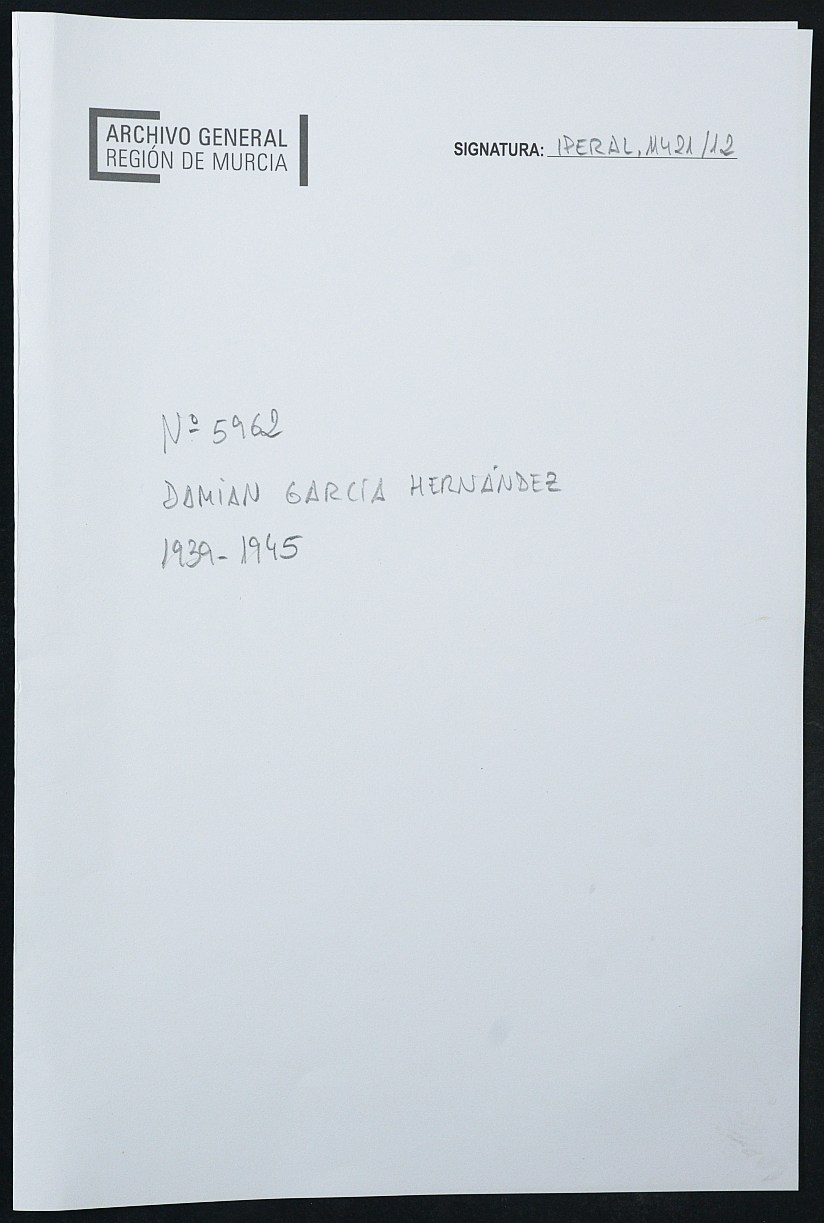 ARCHIVO GENERAL
REGIÓN DE MURCIA
SIGNATURA: IPERAL, 11421/12
Nº 5962
DAMIAN GARCÍA HERNÁNDEZ
1939-1945